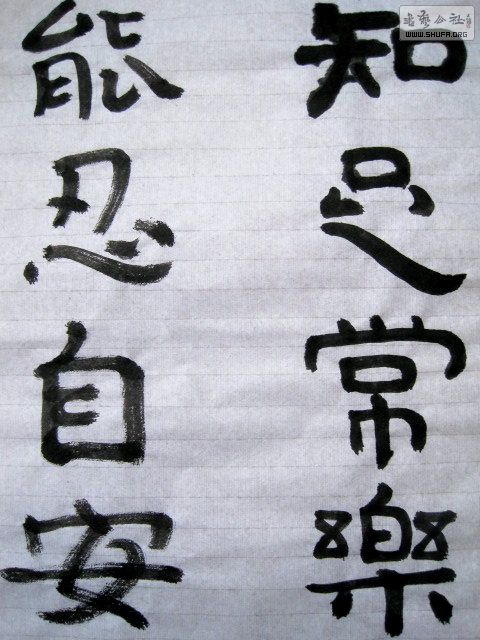 知足常樂
能忍自安
書藝公社
WWW.SHUFA.ORG